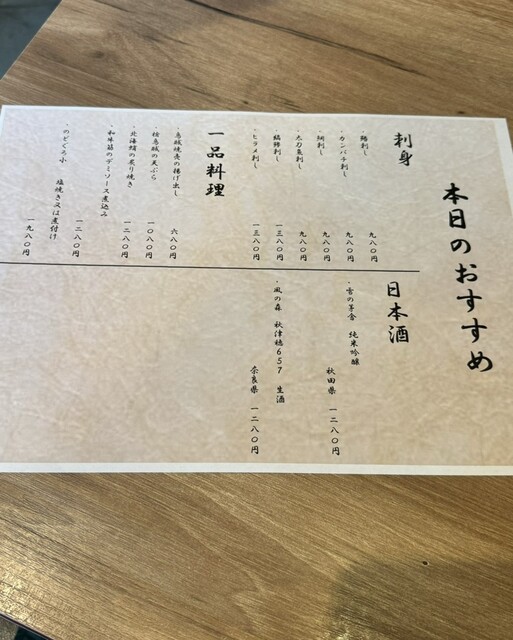 本日のおすすめ
刺身
・鯵刺し 九八〇円
・カンパチ刺し 九八〇円
・鯛刺し 九八〇円
・太刀魚刺し 九八〇円
・縞鯵刺し 一三八〇円
・ヒラメ刺し 一三八〇円
一品料理
・烏賊焼売の揚げ出し 六八〇円
・桧烏賊の天ぷら 一〇八〇円
・北海蛸の炙り焼き 一二八〇円
・和牛筋のデミソース煮込み 一二八〇円
のどぐろ小 塩焼き又は煮付け 一九八〇円
日本酒
・雪の茅舎 純米吟醸
秋田県 一二八〇円
・風の森 秋津穂657 生酒
奈良県 一二八〇円